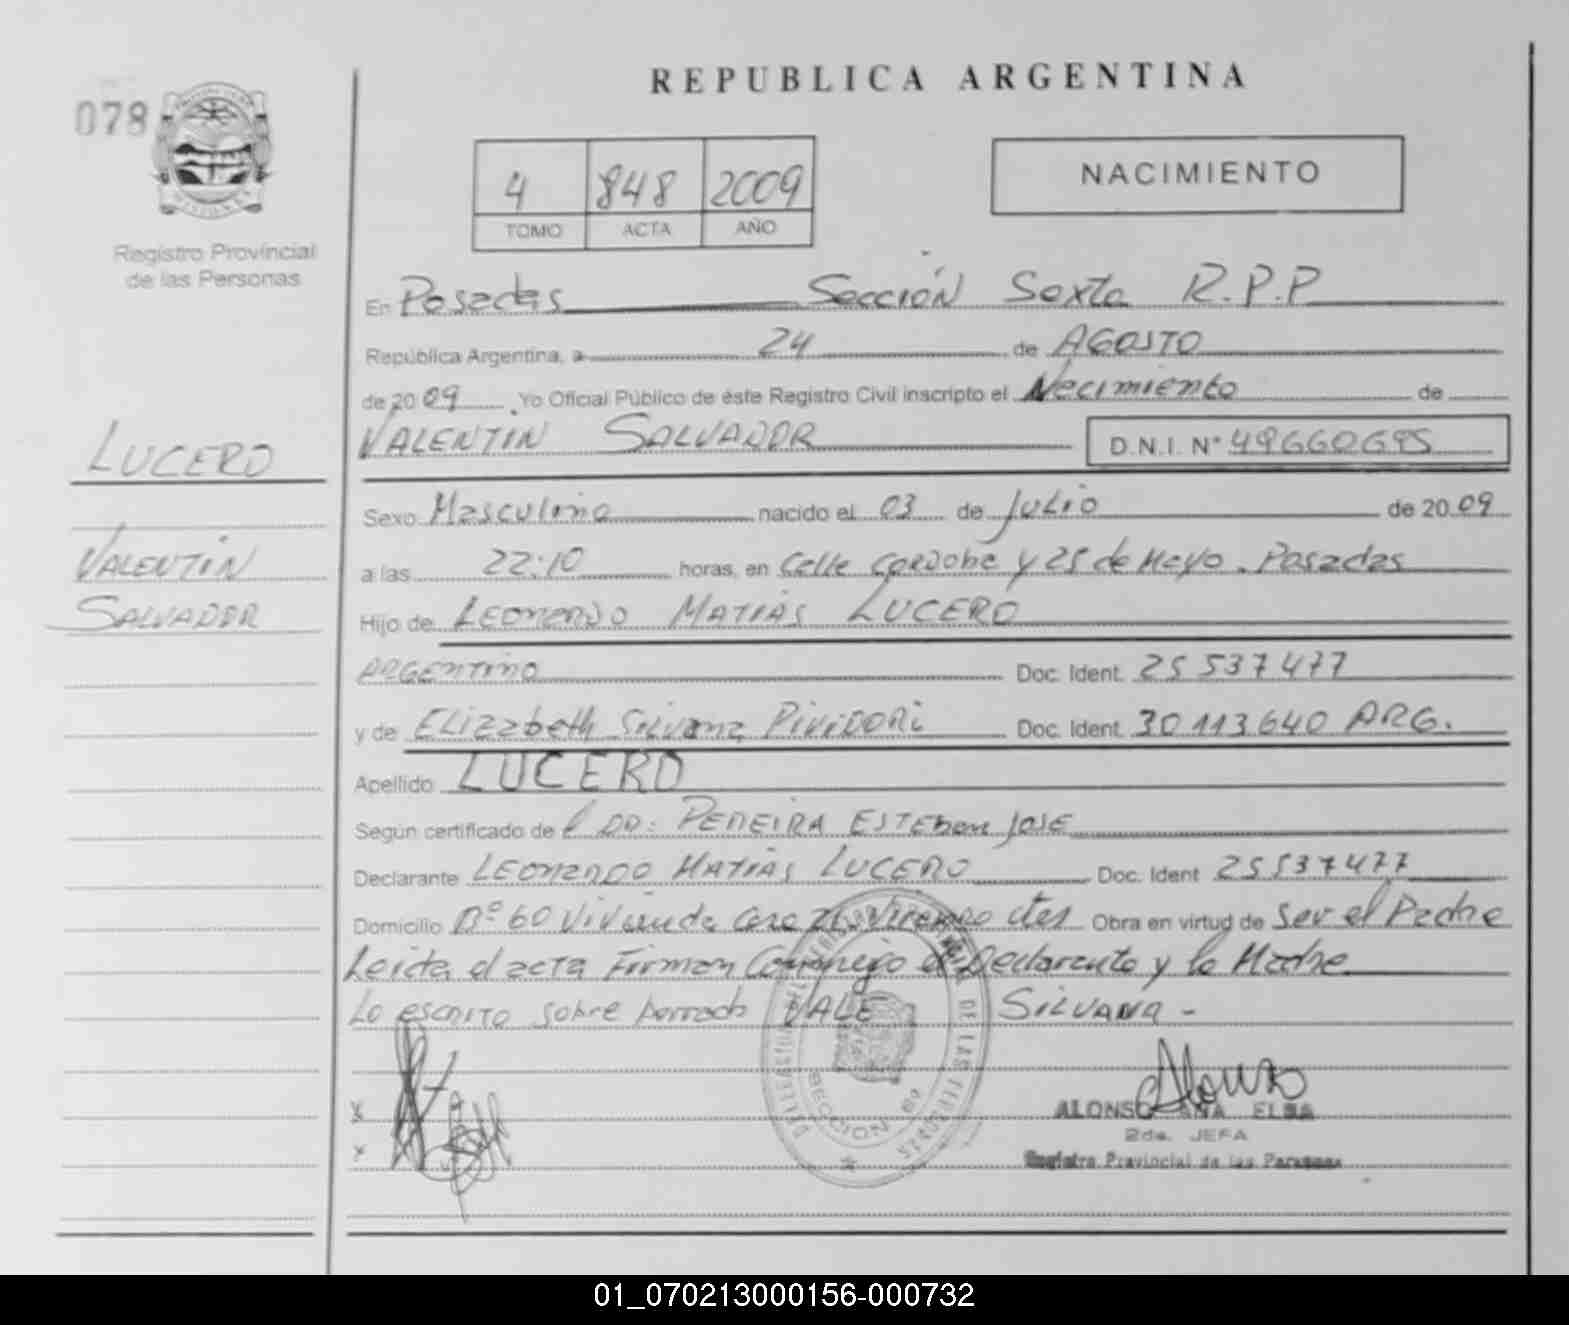 REPUBLICA ARGENTINA
078
NACIMIENTO
4 848 2009
TOMO ACTA AÑO
Registro Provincial
de las Personas
En Posadas Sección Sexta R.P.P
República Argentina, a 24 de AGOSTO
de 20 09 Yo Oficial Público de éste Registro Civil inscripto el Necimiento de
VALENTIN SALVADOR D.N.I. N° 49660695
LUCERO
VALENTIN
SALVADOR
Sexo Masculino nacido el 03 de Julio de 20 09
a las 22:10 horas, en Calle Cordoba y 25 de Mayo. Posadas
Hijo de LEONARDO MATIAS LUCERO
ARGENTINO Doc. Ident. 25 537 477
y de Elizabeth Silvana PIVIDORI Doc. Ident. 30 113 640 ARG.
Apellido LUCERO
Según certificado de l DR: PEREIRA ESTEBAN JOSE
Declarante LEONARDO MATIAS LUCERO Doc. Ident 25537477
Domicilio B° 60 Vivienda Casa Ctes Obra en virtud de Ser el Padre
Leida el acta Firman Conmigo el Declarante y la Madre
Lo escrito sobre borrado VALE SILVANA -
X
X
SECCION 6ª
DE LAS PERSONAS
ALONSO ANA ELBA
2da. JEFA
Registro Provincial de las Personas
01_070213000156-000732